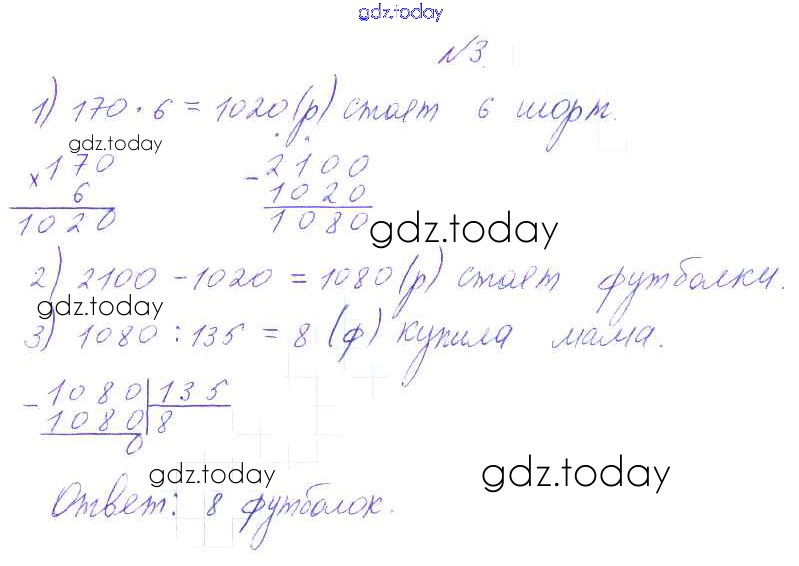 gdz.today
№3.
1) 170 · 6 = 1020 (р) стоят 6 шорт.
gdz.today
× 170
6
1020
- 2100
1020
1080
gdz.today
2) 2100 - 1020 = 1080 (р) стоят футболки.
gdz.today
3) 1080 : 135 = 8 (ф) купила мама.
- 1080 | 135
1080 | 8
0
gdz.today
gdz.today
Ответ: 8 футболок.